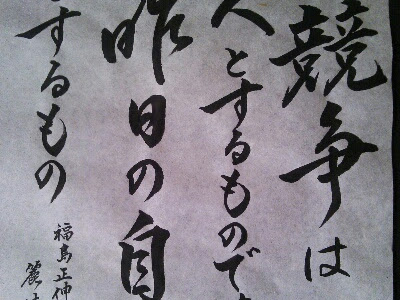 競争は
人とするものです
昨日の自
とするもの
福島正伸
麗